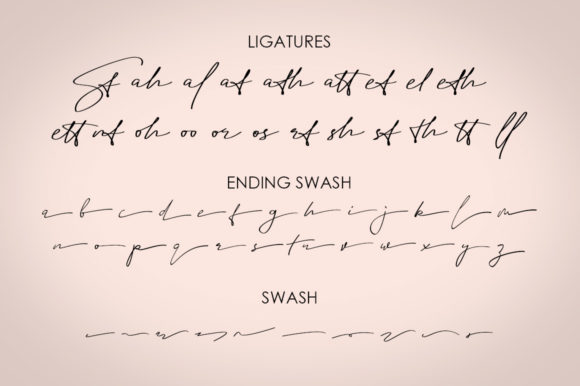 LIGATURES
St ah al at ath att et el eth
ett nt oh oo or os rt sh st th tt ll
ENDING SWASH
a b c d e f g h i j k l m
n o p q r s t u v w x y z
SWASH